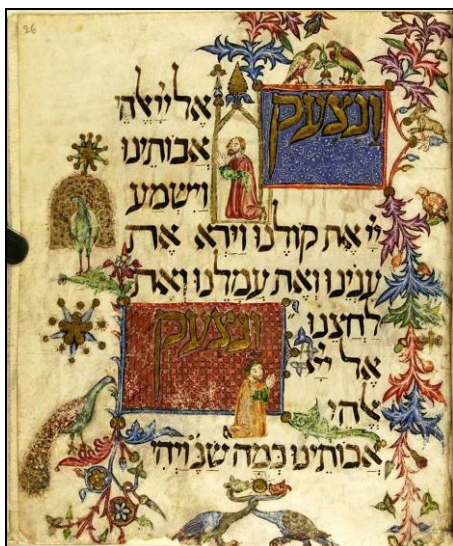 26
ונצעק אל ייי אלהי
אבותינו
וישמע
ייי את קולנו וירא את
ענינו ואת עמלנו ואת
לחצנו
ונצעק
אל ייי
אלהי
אבותינו כמה שנ' ויהי